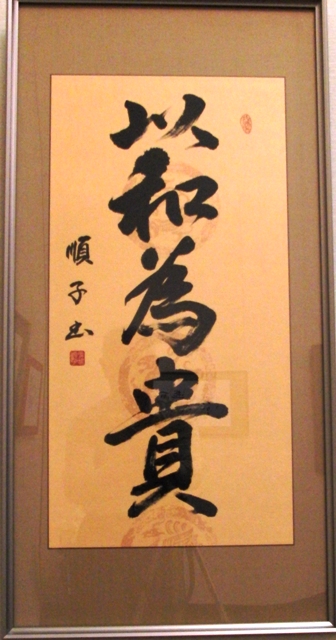 以和為貴
順子书